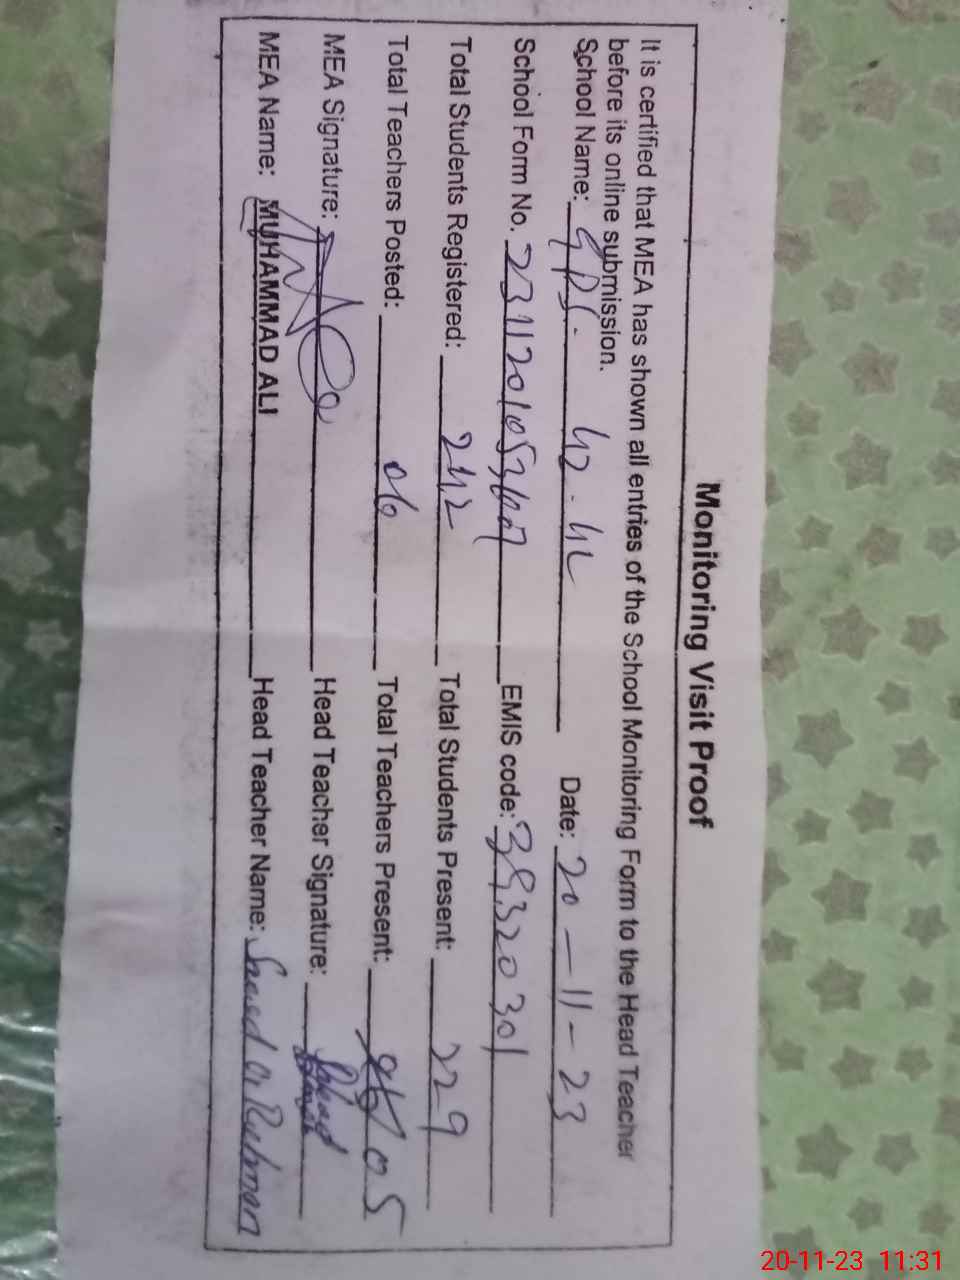 Monitoring Visit Proof
It is certified that MEA has shown all entries of the School Monitoring Form to the Head Teacher
before its online submission.
School Name: GPS. 42.4L Date: 20-11-23
School Form No. EMIS code: 38320301
Total Students Registered: 242 Total Students Present: 229
Total Teachers Posted: 06 Total Teachers Present: 05
MEA Signature: Head Teacher Signature:
MEA Name: MUHAMMAD ALI Head Teacher Name: Saeed Ur Rehman
20-11-23 11:31